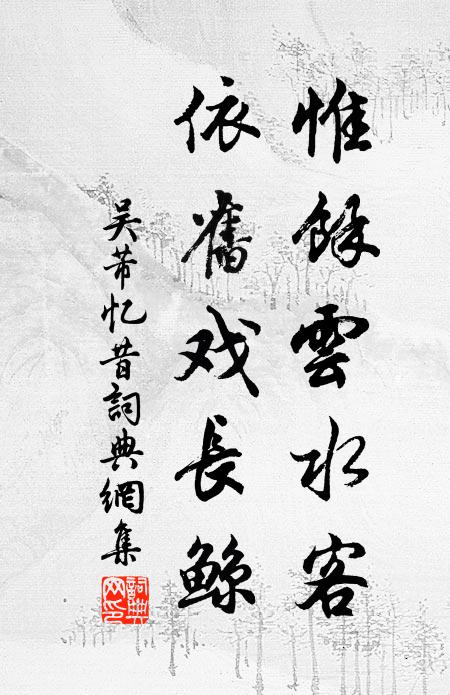 惟餘雲水客
依舊戏長鲸
吴芾忆昔詞典網集
詞典网印